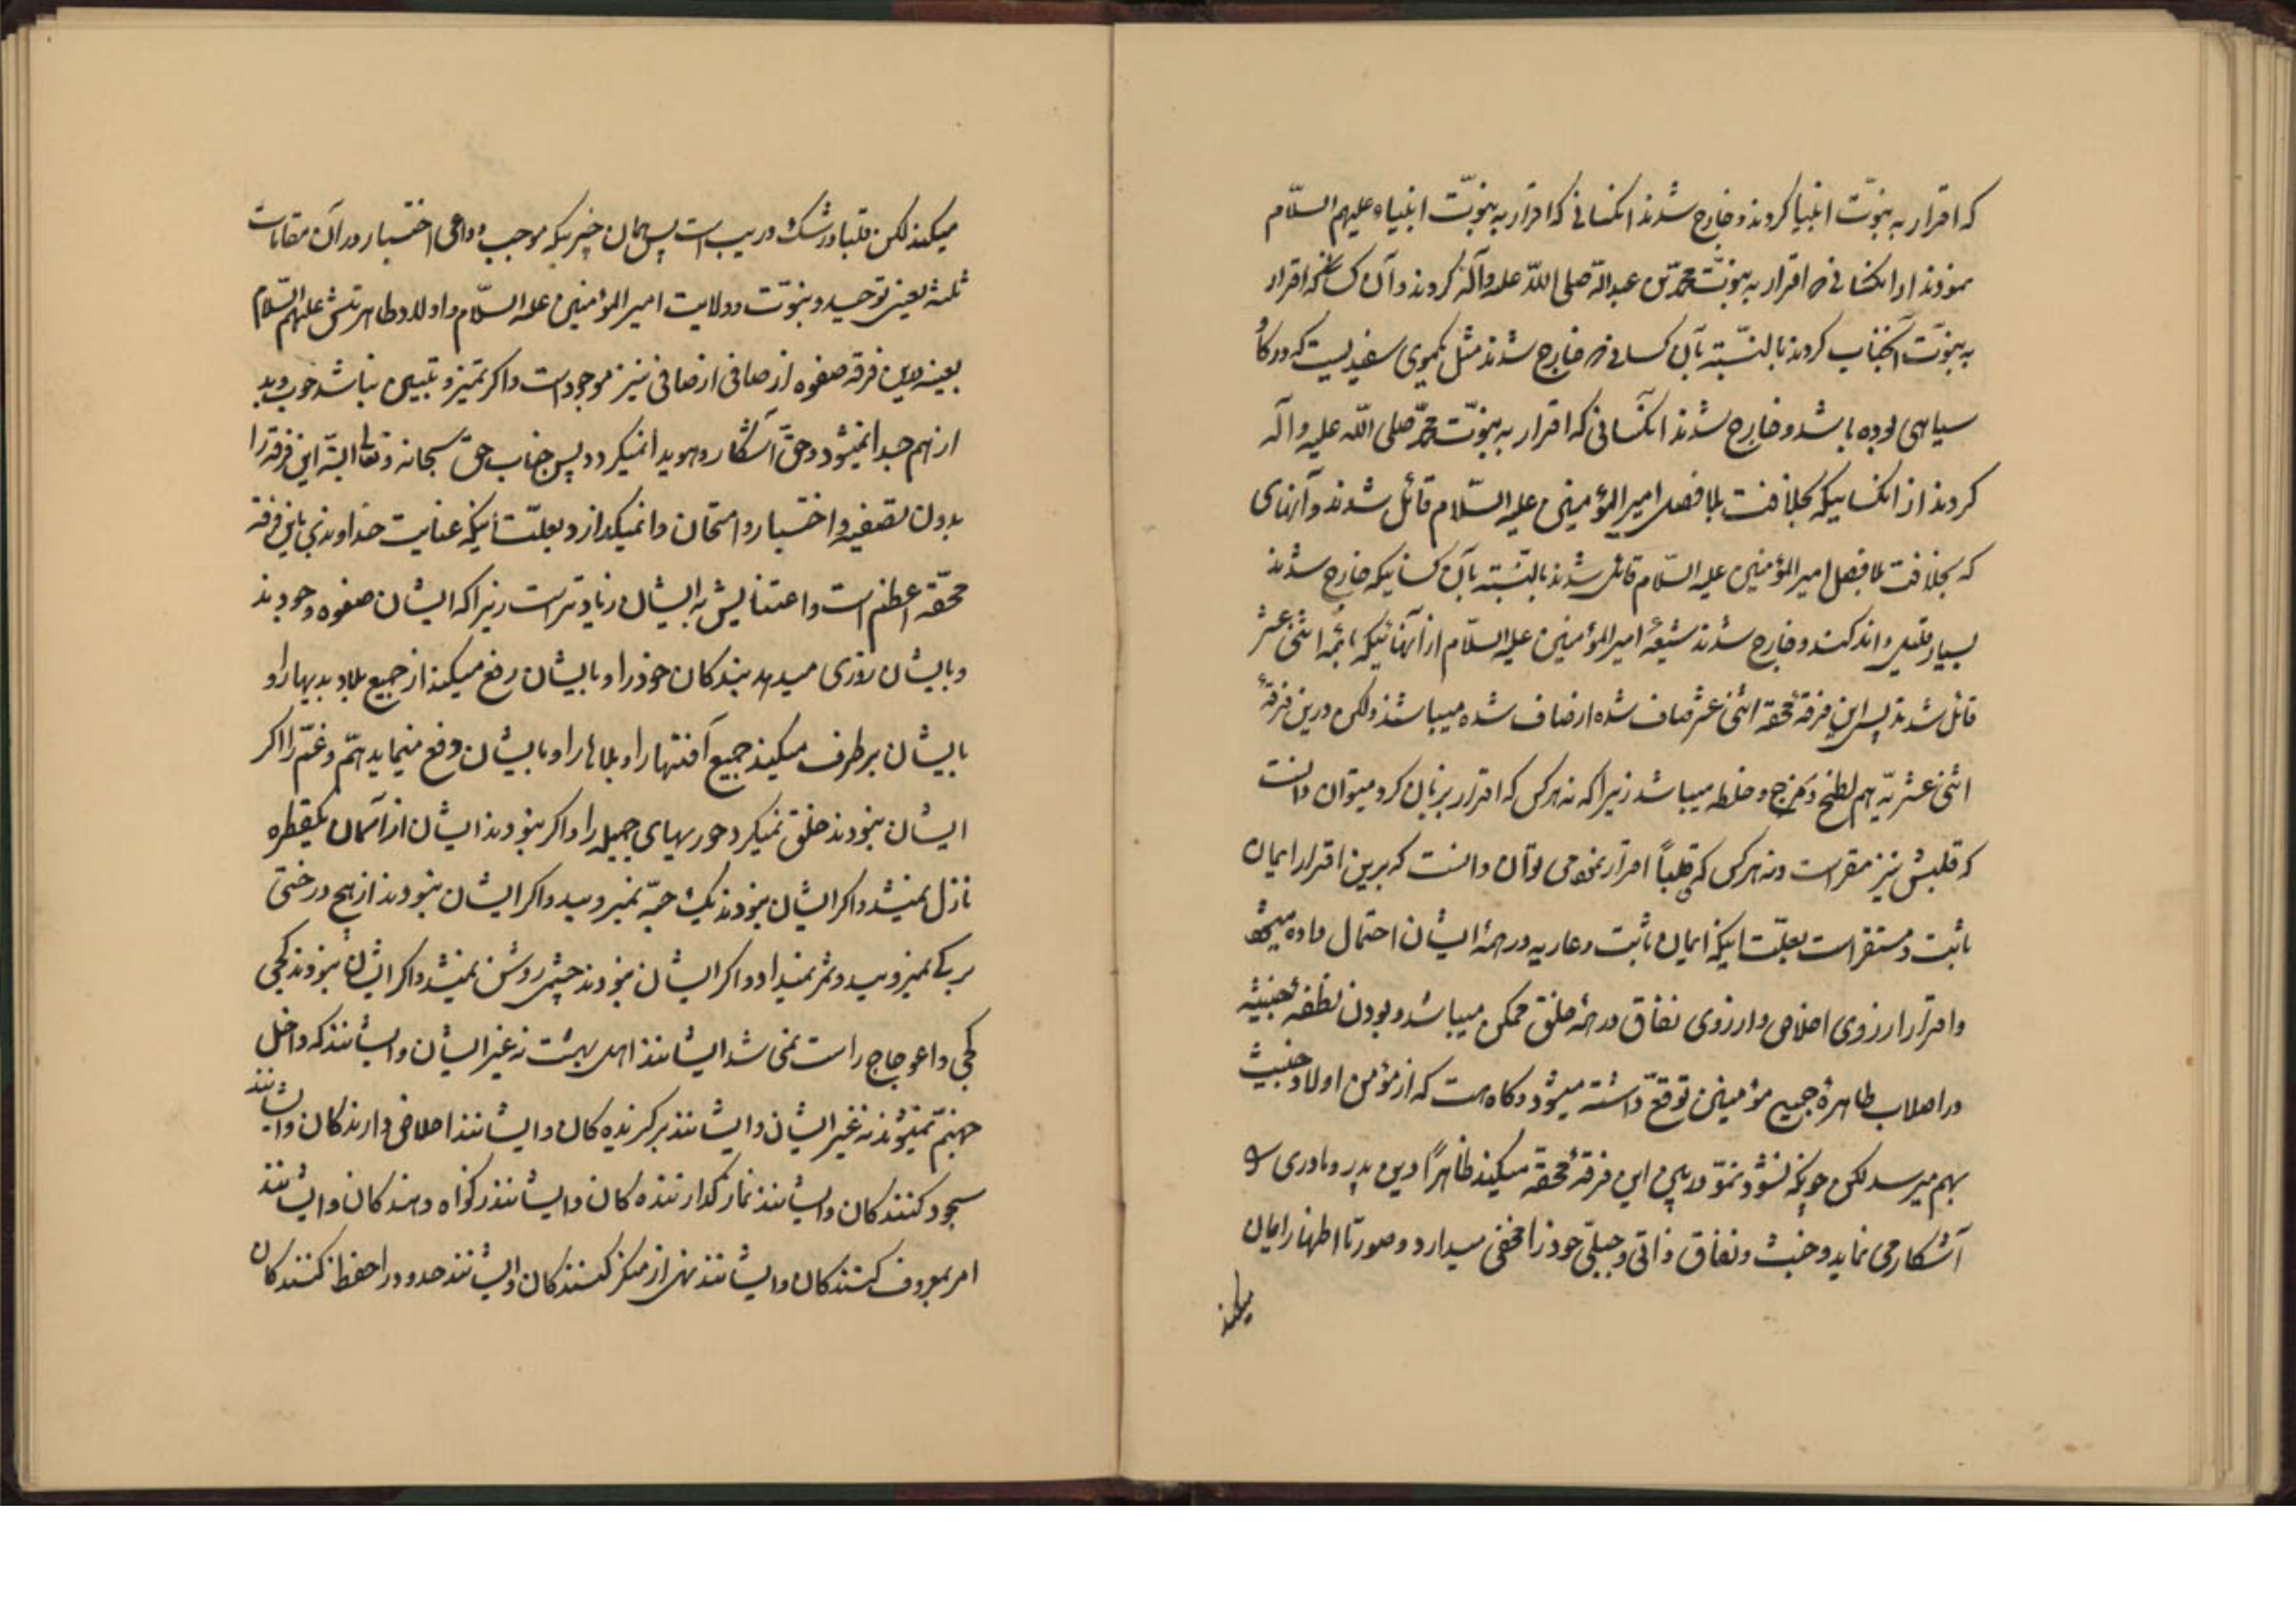 که اقرار به نبوّت انبیا کردند و خارج شدند انکسانی که اقرار به نبوّت انبیاء علیهم السّلام
نمودند از انکسانی که اقرار به نبوّت محمّد بن عبدالله صلی الله علیه وآله کردند و آن کسانی که اقرار
به نبوّت آنجناب کردند بالنسّبته بآن کسانی که خارج شدند مثل یکموی سفیدیست که در گاو
سیاهی بوده باشد و خارج شدند انکسانی که اقرار به نبوّت محمّد صلی الله علیه وآله
کردند از انکسانیکه بخلافت بلا فصل امیر المؤمنین علیه السّلام قائل شدند و آنهای
که بخلافت بلا فصل امیر المؤمنین علیه السّلام قائل شدند بالنسّبته بآن کسانیکه خارج شدند
بسیار قلیل و اندکند و خارج شدند شیعهٔ امیر المؤمنین علیه السّلام از آنهائیکه بائمّه اثنی عشر
قائل شدند پس این فرقهٔ محقه اثنی عشر صاف شده از صاف شده میباشند ولکن درین فرقهٔ
اثنی عشریّه هم لطخ و مزج و خلطه میباشد زیرا که نه هر کس که اقرار بزبان کرد میتوان دانست
که قلبش نیز مقر است و نه هر کس که قلباً اقرار نمود می توان دانست که برین اقرار ایمان
ثابت و مستقر است بعلّت اینکه ایمان ثابت و عاریه در همهٔ ایشان احتمال داده میشود
و اقرار از روی اخلاص و از روی نفاق در همهٔ خلق ممکن میباشد و بودن نطفهٔ خبیثه
در اصلاب طاهرهٔ جمیع مؤمنین توقعّ داشته میشود و گاه هست که از مؤمن اولاد خبیث
بهم میرسد لکن چونکه نشو و نموّ در بین این فرقهٔ محقه میکند ظاهراً دین پدر و مادری
آشکار می نماید و خبث و نفاق ذاتی و جبلّی خود را مخفی میدارد و صورتاً اظهار ایمان
میکند
میکند لکن قلبا در شک و ریب است پس همان چیزیکه موجب و داعی اختبار در آن مقامات
ثلثه یعنی توحید و نبوّت و ولایت امیر المؤمنین علیه السّلام و اولاد طاهرینش علیهم السّلام
بعینه در این فرقه صفوه از صافی از صافی نیز موجود است و اگر تمیز و تبیین نباشد خوب و بد
از هم جدا نمیشود و حقّ آشکار و هویدا نمیگردد پس جناب حق سبحانه و تعالی البتّه این فرقه را
بدون تصفیه و اختبار و امتحان وا نمیگذارد بعلّت اینکه عنایت خداوندی باین فرقه
محقّه اعظم است و اعتنایش به ایشان زیادتر است زیرا که ایشان صفوه وجودند
و بایشان روزی میدهد بندگان خود را و بایشان رفع میکند از جمیع بلاد بدیها را و
بایشان برطرف میکند جمیع آفتها را و بلاها را و بایشان دفع مینماید همّ و غمّ را اگر
ایشان نبودند خلق نمیکرد حوریهای جمیله را و اگر نبودند ایشان از آسمان یکقطره
نازل نمیشد و اگر ایشان نبودند یک حبّه نمیرویید و اگر ایشان نبودند از هیچ درختی
برگی نمیرویید و ثمر نمیداد و اگر ایشان نبودند چشمی روشن نمیشد و اگر ایشان نبودند کجی
کجی و اعوجاج راست نمی شد ایشانند اهل بهشت نه غیر ایشان و ایشانند که داخل
جهنّم نمیشوند نه غیر ایشان و ایشانند برگزیده کان و ایشانند اخلاص دارندکان و ایشانند
سجود کنندکان و ایشانند نماز گذارنده کان و ایشانند زکواه دهندکان و ایشانند
امر بمعروف کنندکان و ایشانند نهی از منکر کنندکان و ایشانند حدود را حفظ کنندکان